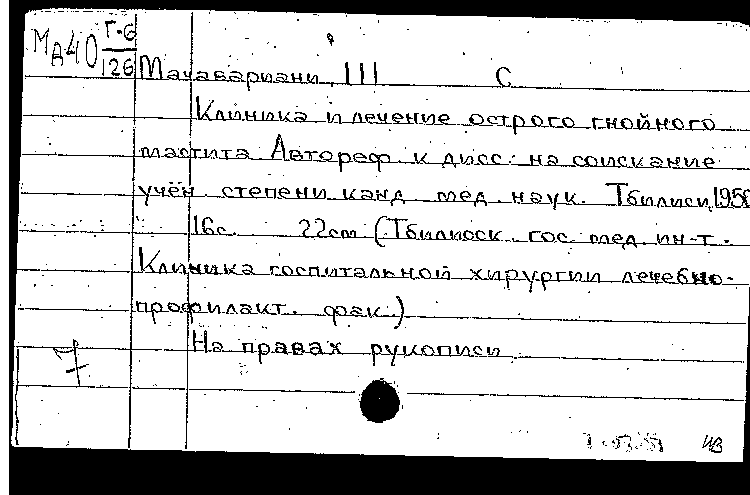 МА40 Г-6
126
Мачавариани, Ш С
Клиника и лечение острого гнойного
мастита. Автореф. к дисс. на соискание
учён. степени канд. мед. наук. Тбилиси,
16с. 22см (Тбилисск. гос. мед. ин-т.
Клиника госпитальной хирургии лечебно-
профилакт. фак.)
На правах рукописи
7
ИВ